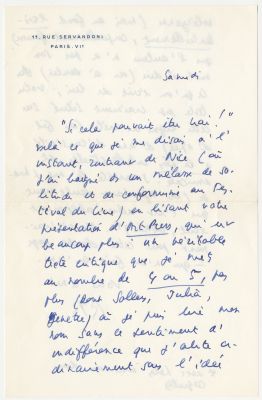 11, RUE SERVANDONI
PARIS. VIe
Samedi
"Si cela pouvait être vrai !"
voilà ce que je me disais à l'
instant, rentrant de Nice (où
j'ai baigné ds un mélasse de so-
litude et de conformisme au Fes-
tival du Livre) en lisant votre
présentation d'Art Press, qui est
beaucoup plus : un véritable
texte critique que je mets
au nombre de 4 ou 5, pas
plus (dont Sollers, Julia,
Genette) où je puis lire mon
nom sans ce sentiment d'
indifférence que j'alerte
dinairement sans l'idée